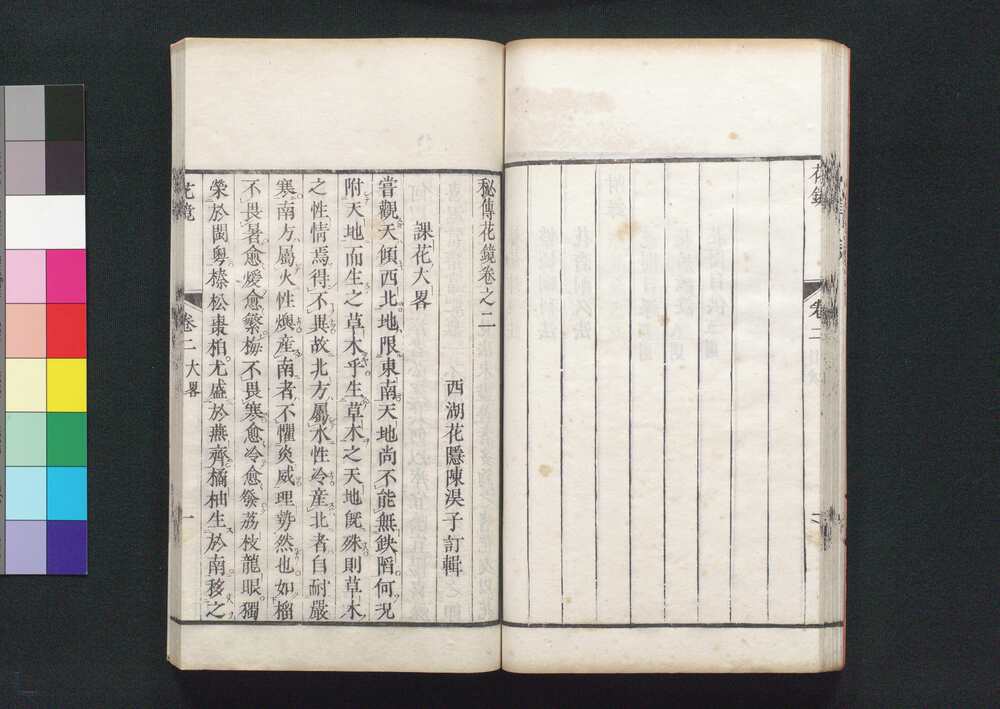 花鏡
卷二
秘傳花鏡卷之二
西湖花隱陳淏子訂輯
課花大畧
嘗觀天傾西北地限東南天地尚不能無缺陷何况
附天地而生之草木乎生草木之天地旣殊則草木
之性情焉得不異故北方屬水性冷產北者自耐嚴
寒南方屬火性燠產南者不懼炎威理勢然也如榴
不畏暑愈煖愈繁梅不畏寒愈冷愈發荔枝龍眼獨
榮於閩粤榛松棗柏尤盛於燕齊橘柚生於南移之
花鏡
卷二 大畧
一